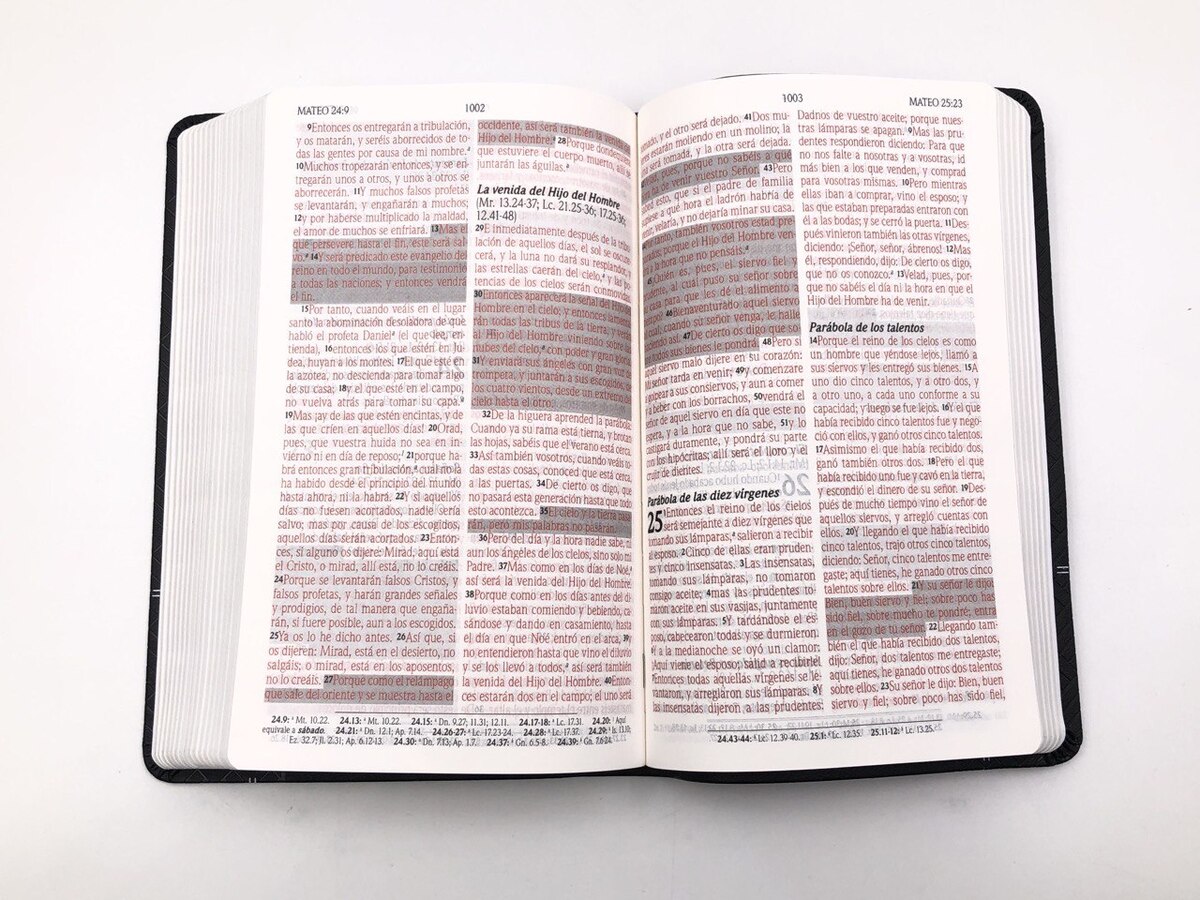 MATEO 24:9
1002
9Entonces os entregarán a tribulación,
y os matarán, y seréis aborrecidos de to-
das las gentes por causa de mi nombre.ª
10Muchos tropezarán entonces, y se en-
tregarán unos a otros, y unos a otros se
aborrecerán. 11Y muchos falsos profetas
se levantarán, y engañarán a muchos;
12y por haberse multiplicado la maldad,
el amor de muchos se enfriará. 13Mas el
que persevere hasta el fin, éste será sal-
vo.ª 14Y será predicado este evangelio del
reino en todo el mundo, para testimonio
a todas las naciones; y entonces vendrá
el fin.
15Por tanto, cuando veáis en el lugar
santo la abominación desoladora de que
habló el profeta Danielª (el que lea, en-
tienda), 16entonces los que estén en Ju-
dea, huyan a los montes. 17El que esté en
la azotea, no descienda para tomar algo
de su casa; 18y el que esté en el campo,
no vuelva atrás para tomar su capa.ª
19Mas ¡ay de las que estén encintas, y de
las que críen en aquellos días! 20Orad,
pues, que vuestra huida no sea en in-
vierno ni en día de reposo;ª 21porque ha-
brá entonces gran tribulación,ª cual no la
ha habido desde el principio del mundo
hasta ahora, ni la habrá. 22Y si aquellos
días no fuesen acortados, nadie sería
salvo; mas por causa de los escogidos,
aquellos días serán acortados. 23Enton-
ces, si alguno os dijere: Mirad, aquí está
el Cristo, o mirad, allí está, no lo creáis.
24Porque se levantarán falsos Cristos, y
falsos profetas, y harán grandes señales
y prodigios, de tal manera que engaña-
rán, si fuere posible, aun a los escogidos.
25Ya os lo he dicho antes. 26Así que, si
os dijeren: Mirad, está en el desierto, no
salgáis; o mirad, está en los aposentos,
no lo creáis. 27Porque como el relámpago
que sale del oriente y se muestra hasta el
occidente, así será también la venida del
Hijo del Hombre.ª 28Porque dondequiera
que estuviere el cuerpo muerto, allí se
juntarán las águilas.ª
La venida del Hijo del Hombre
(Mr. 13.24-37; Lc. 21.25-36; 17.25-36;
12.41-48)
29E inmediatamente después de la tribu-
lación de aquellos días, el sol se oscure-
cerá, y la luna no dará su resplandor, y
las estrellas caerán del cielo,ª y las po-
tencias de los cielos serán conmovidas.
30Entonces aparecerá la señal del Hijo del
Hombre en el cielo; y entonces lamenta-
rán todas las tribus de la tierra, y verán
al Hijo del Hombre viniendo sobre las
nubes del cielo,ª con poder y gran gloria.
31Y enviará sus ángeles con gran voz de
trompeta, y juntarán a sus escogidos, de
los cuatro vientos, desde un extremo del
cielo hasta el otro.
32De la higuera aprended la parábola:
Cuando ya su rama está tierna, y brotan
las hojas, sabéis que el verano está cerca.
33Así también vosotros, cuando veáis to-
das estas cosas, conoced que está cerca,
a las puertas. 34De cierto os digo, que
no pasará esta generación hasta que todo
esto acontezca. 35El cielo y la tierra pasa-
rán, pero mis palabras no pasarán.
36Pero del día y la hora nadie sabe, ni
aun los ángeles de los cielos, sino sólo mi
Padre. 37Mas como en los días de Noé,ª
así será la venida del Hijo del Hombre.
38Porque como en los días antes del di-
luvio estaban comiendo y bebiendo, ca-
sándose y dando en casamiento, hasta
el día en que Noé entró en el arca, 39y
no entendieron hasta que vino el diluvio
y se los llevó a todos,ª así será también
la venida del Hijo del Hombre. 40Enton-
ces estarán dos en el campo; el uno será
24.9: ª Mt. 10.22. 24.13: ª Mt. 10.22. 24.15: ª Dn. 9.27; 11.31; 12.11. 24.17-18: ª Lc. 17.31. 24.20: ª Aquí
equivale a sábado. 24.21: ª Dn. 12.1; Ap. 7.14. 24.26-27: ª Lc. 17.23-24. 24.28: ª Lc. 17.37. 24.29: ª Is. 13.10;
Ez. 32.7; Jl. 2.31; Ap. 6.12-13. 24.30: ª Dn. 7.13; Ap. 1.7. 24.37: ª Gn. 6.5-8. 24.39: ª Gn. 7.6-24.
1003
MATEO 25:23
tomado, y el otro será dejado. 41Dos mu-
jeres estarán moliendo en un molino; la
una será tomada, y la otra será dejada.
pues, porque no sabéis a qué
ha de venir vuestro Señor. 43Pero
sabed esto, que si el padre de familia
supiese a qué hora el ladrón habría de
venir, velaría, y no dejaría minar su casa.
tanto, también vosotros estad pre-
parados; porque el Hijo del Hombre ven-
drá a la hora que no pensáis.ª
45¿Quién es, pues, el siervo fiel y
prudente, al cual puso su señor sobre
su casa para que les dé el alimento a
46Bienaventurado aquel siervo
al cual, cuando su señor venga, le halle
haciendo así. 47De cierto os digo que so-
bre todos sus bienes le pondrá. 48Pero si
aquel siervo malo dijere en su corazón:
Mi señor tarda en venir; 49y comenzare
a golpear a sus consiervos, y aun a comer
y a beber con los borrachos, 50vendrá el
señor de aquel siervo en día que éste no
espera, y a la hora que no sabe, 51y lo
castigará duramente, y pondrá su parte
con los hipócritas; allí será el lloro y el
crujir de dientes.
Parábola de las diez vírgenes
25 Entonces el reino de los cielos
será semejante a diez vírgenes que
tomando sus lámparas,ª salieron a recibir
al esposo. 2Cinco de ellas eran pruden-
tes y cinco insensatas. 3Las insensatas,
tomando sus lámparas, no tomaron
consigo aceite; 4mas las prudentes to-
maron aceite en sus vasijas, juntamente
con sus lámparas. 5Y tardándose el es-
poso, cabecearon todas y se durmieron.
6Y a la medianoche se oyó un clamor:
¡Aquí viene el esposo; salid a recibirle!
7Entonces todas aquellas vírgenes se le-
vantaron, y arreglaron sus lámparas. 8Y
las insensatas dijeron a las prudentes:
Dadnos de vuestro aceite; porque nues-
tras lámparas se apagan. 9Mas las pru-
dentes respondieron diciendo: Para que
no nos falte a nosotras y a vosotras, id
más bien a los que venden, y comprad
para vosotras mismas. 10Pero mientras
ellas iban a comprar, vino el esposo; y
las que estaban preparadas entraron con
él a las bodas; y se cerró la puerta. 11Des-
pués vinieron también las otras vírgenes,
diciendo: ¡Señor, señor, ábrenos! 12Mas
él, respondiendo, dijo: De cierto os digo,
que no os conozco.ª 13Velad, pues, por-
que no sabéis el día ni la hora en que el
Hijo del Hombre ha de venir.
Parábola de los talentos
14Porque el reino de los cielos es como
un hombre que yéndose lejos, llamó a
sus siervos y les entregó sus bienes. 15A
uno dio cinco talentos, y a otro dos, y
a otro uno, a cada uno conforme a su
capacidad; y luego se fue lejos. 16Y el que
había recibido cinco talentos fue y nego-
ció con ellos, y ganó otros cinco talentos.
17Asimismo el que había recibido dos,
ganó también otros dos. 18Pero el que
había recibido uno fue y cavó en la tierra,
y escondió el dinero de su señor. 19Des-
pués de mucho tiempo vino el señor de
aquellos siervos, y arregló cuentas con
ellos. 20Y llegando el que había recibido
cinco talentos, trajo otros cinco talentos,
diciendo: Señor, cinco talentos me entre-
gaste; aquí tienes, he ganado otros cinco
talentos sobre ellos. 21Y su señor le dijo:
Bien, buen siervo y fiel; sobre poco has
sido fiel, sobre mucho te pondré; entra
en el gozo de tu señor. 22Llegando tam-
bién el que había recibido dos talentos,
dijo: Señor, dos talentos me entregaste;
aquí tienes, he ganado otros dos talentos
sobre ellos. 23Su señor le dijo: Bien, buen
siervo y fiel; sobre poco has sido fiel,
24.43-44: ª Lc. 12.39-40. 25.1: ª Lc. 12.35. 25.11-12: ª Lc. 13.25.